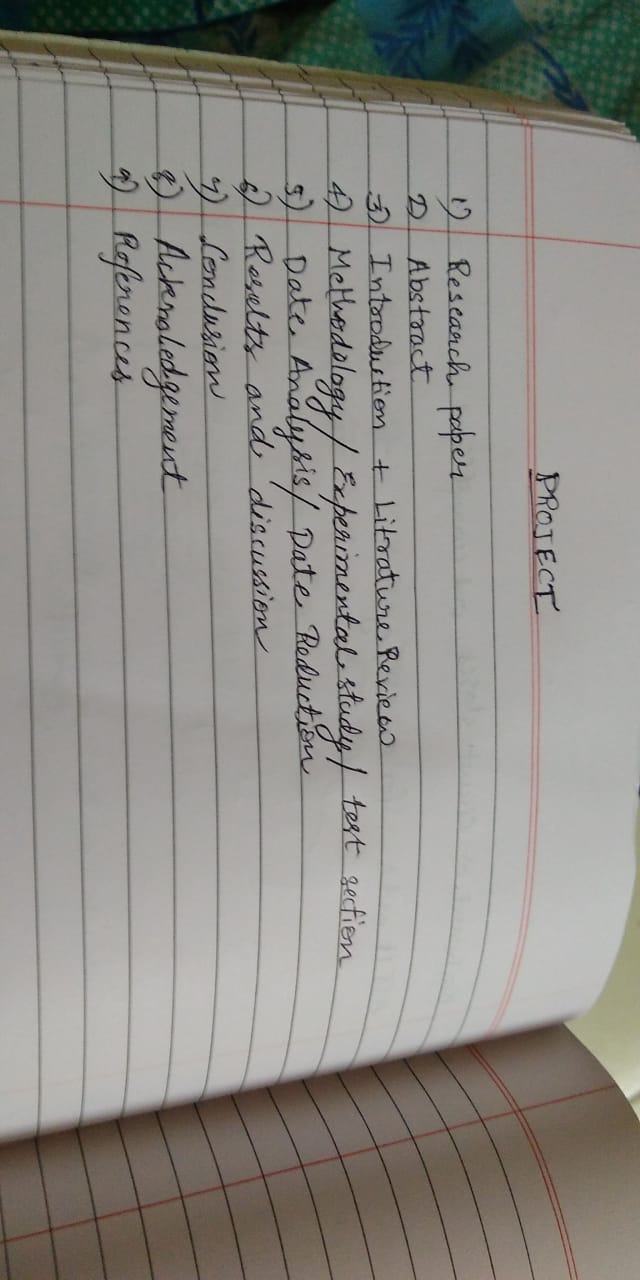 PROJECT
1) Research paper
2) Abstract
3) Introduction + Litrature Review
4) Methodology / Experimental study / test section
5) Date Analysis / Date Reduction
6) Results and discussion
7) Conclusion
8) Acknoledgement
9) References